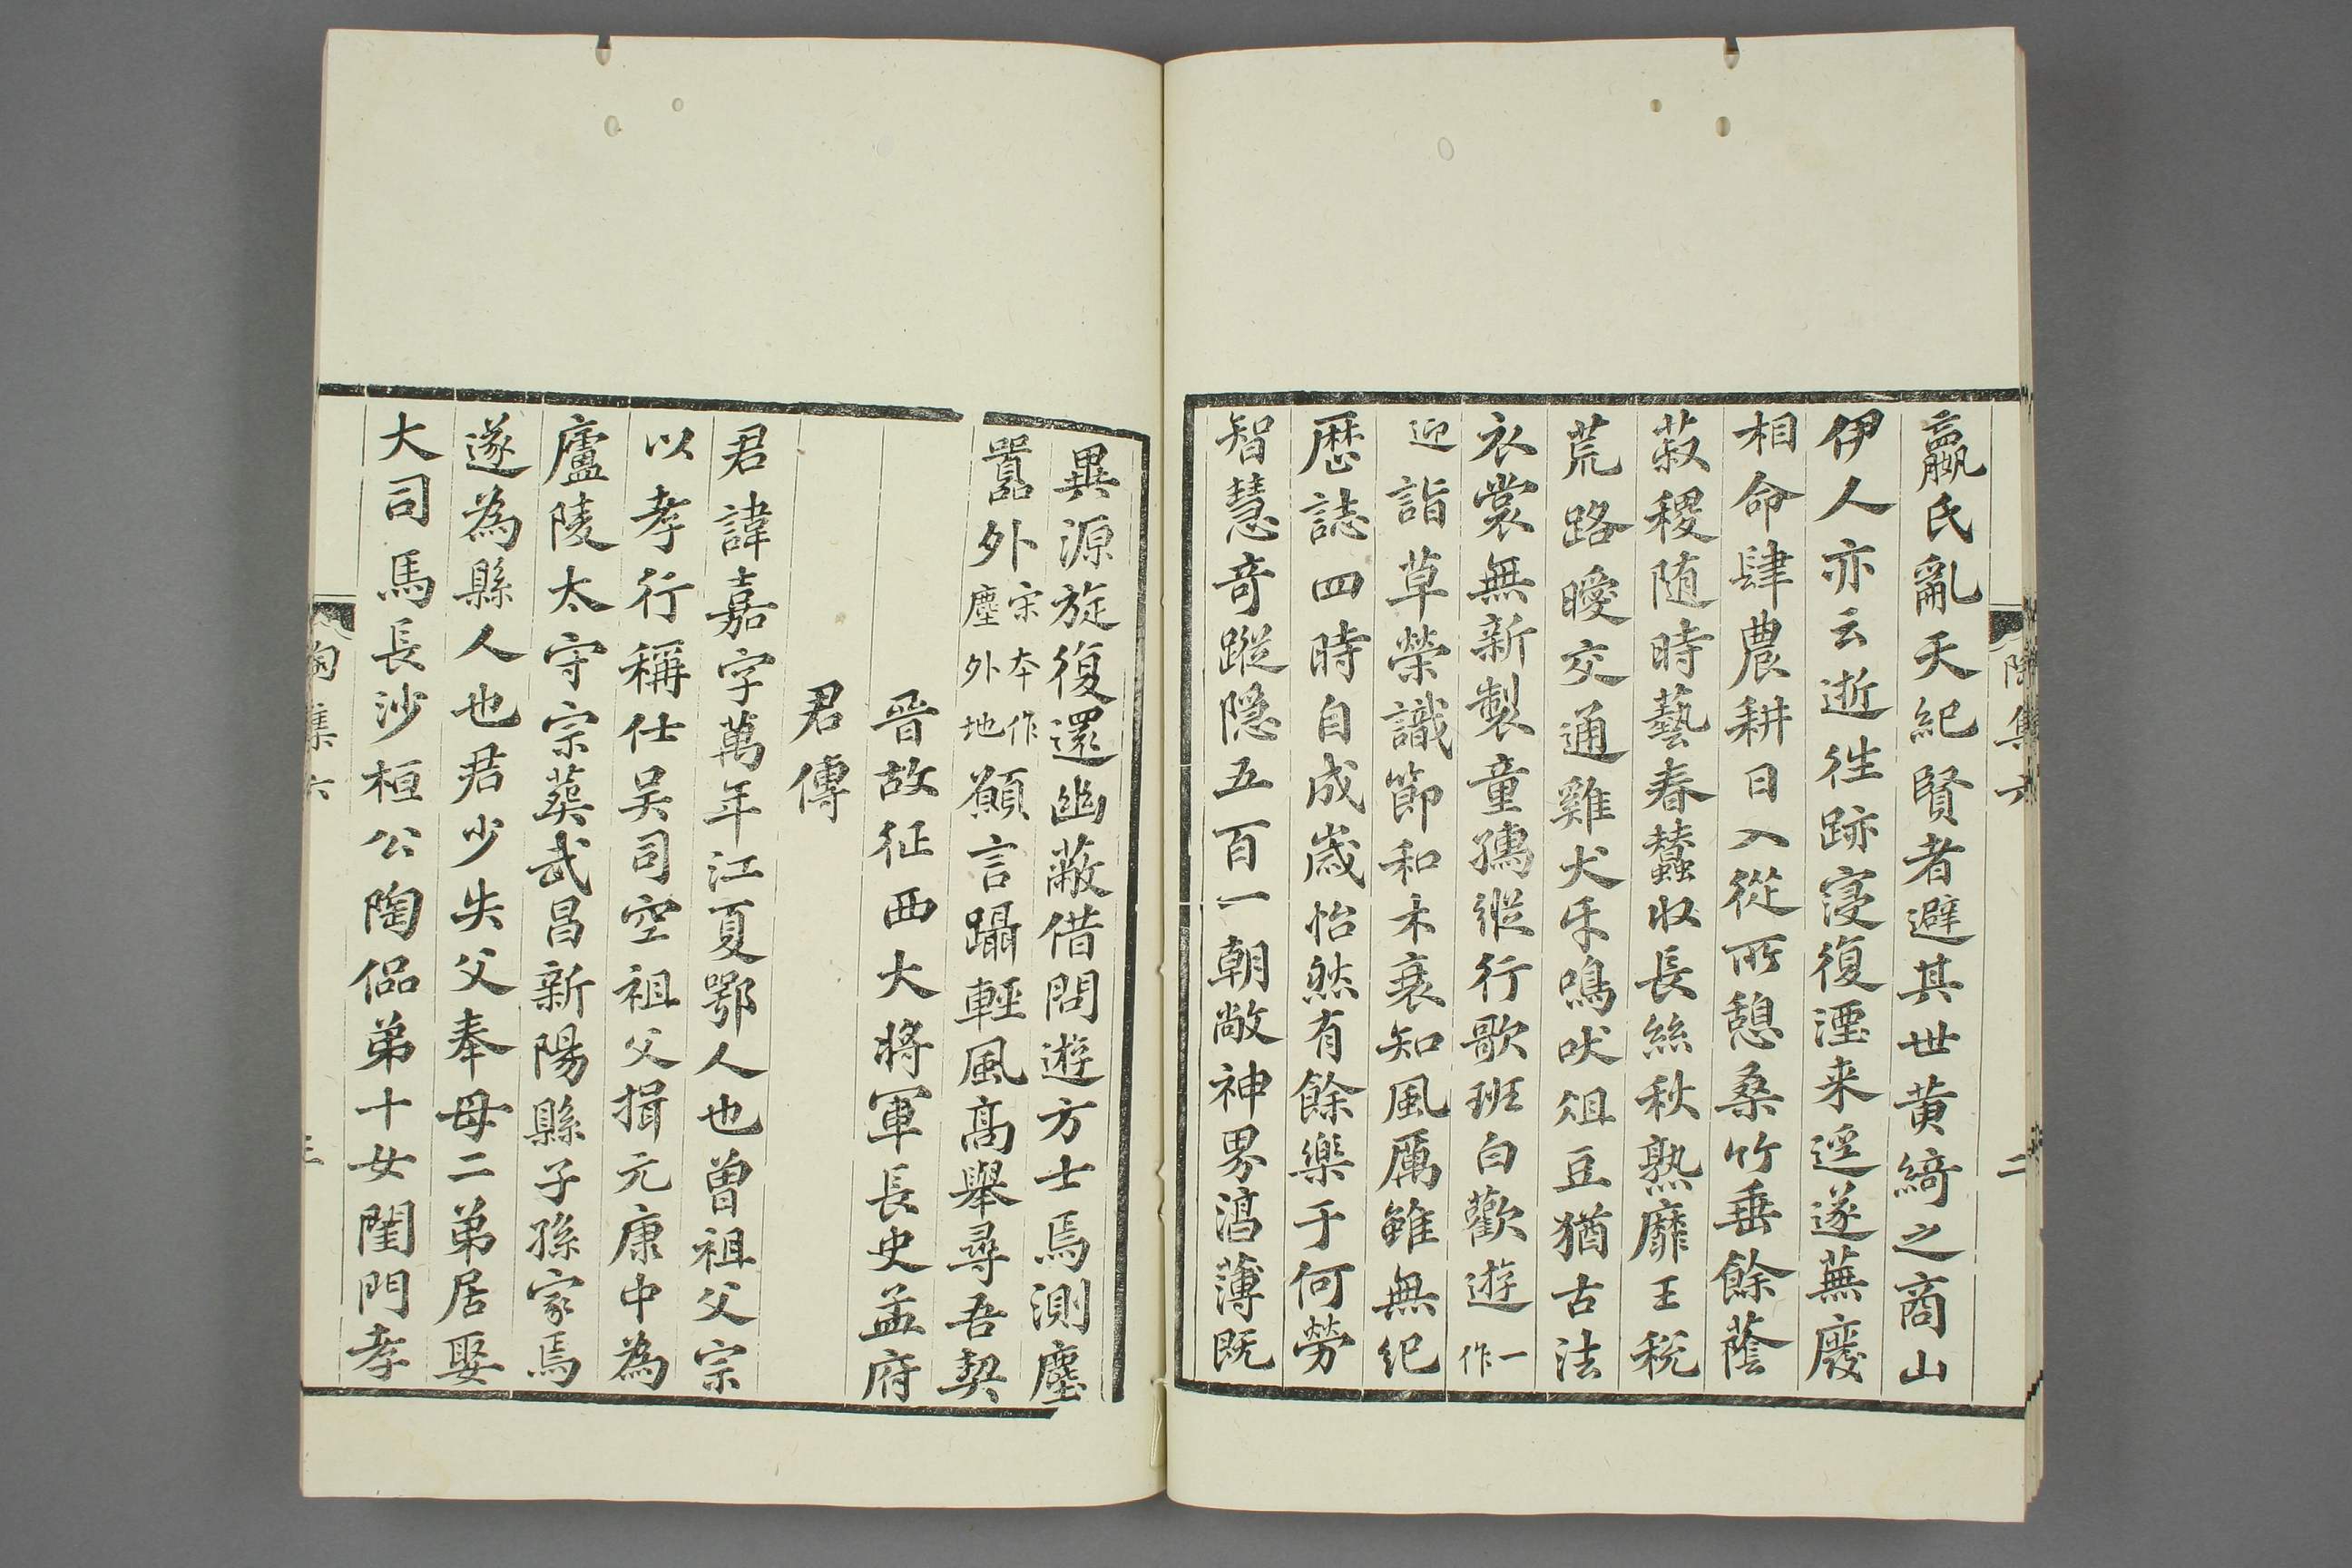 嬴氏亂天紀賢者避其世黄綺之商山
伊人亦云逝徃跡寖復湮来逕遂蕪廢
相命肆農耕日入從所憩桑竹垂餘蔭
菽稷随時藝春蠶收長絲秋熟靡王稅
荒路曖交通雞犬乐鳴吠俎豆猶古法
衣裳無新製童孺縱行歌班白歡遊一作
迎詣草榮識節和木衰知風厲雖無紀
歷誌四時自成歲怡然有餘樂于何勞
智慧竒蹤隱五百一朝敞神界淳薄既
陶集六 二
異源旋復還幽蔽借問遊方士焉測塵
囂外宋本作塵外地願言躡輕風高舉尋吾契
晉故征西大將軍長史孟府
君傳
君諱嘉字萬年江夏鄂人也曾祖父宗
以孝行稱仕吴司空祖父揖元康中為
廬陵太守宗葬武昌新陽縣子孫家焉
遂為縣人也君少失父奉母二弟居娶
大司馬長沙桓公陶侃弟十女閨門孝
陶集六